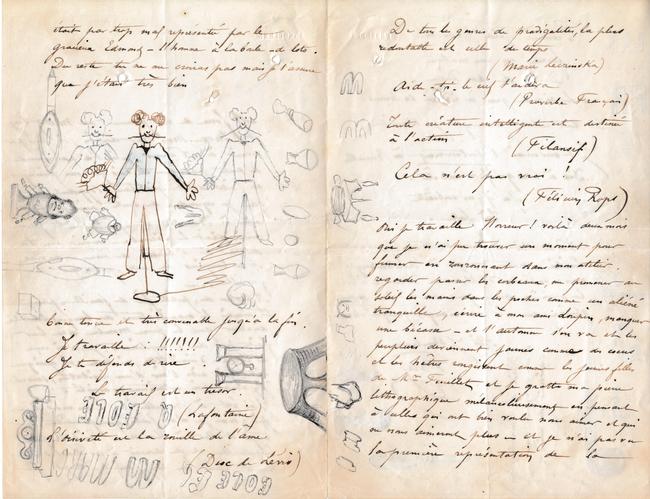 était par trop mal représenté par le
gracieux Edmond – l'homme à la boule de loto.
Du reste tu ne me croiras pas mais je t'assure
que j'étais très bien
Bonne tenue et très convenable jusqu'à la fin.
Je travaille : !!!!!!!
Je te défends de rire.
Le travail est un trésor.
(Lafontaine)
L'oisiveté est la rouille de l'âme
(Duc de Lévis)
EOLE
EOLE
De tous les genres de prodigalités, la plus
redoutable est celle du temps
(Marie Leczinska)
Aide-toi le ciel t'aidera
(Proverbe Français)
Toute créature intelligente est destinée
à l'action
(Filansif)
Cela n'est pas vrai !
(Félicien Rops)
Oui je travaille Horreur ! voilà deux mois
que je n'ai pu trouver un moment pour
fumer en dans mon atelier.
regarder passer les corbeaux, me promener au
soleil les mains dans les poches comme un aliéné
tranquille, écrire à mon ami manquer
une bécasse – et l'automne s'en va et les
peupliers deviennent jaunes comme des cocus
et les hêtres rougissent comme les jeunes filles
de Mr Feuillet, et je gratte ma pierre
lithographique mélancoliquement en pensant
à celles qui ont bien voulu nous aimer et qui
ne nous aiment plus – et je n'ai pas vu
la première représentation de la